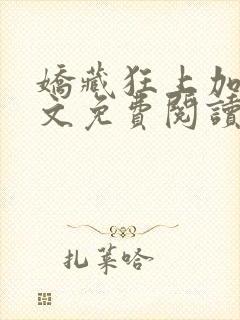 嬌藏狂上加
文免費閱讀
扎萊哈